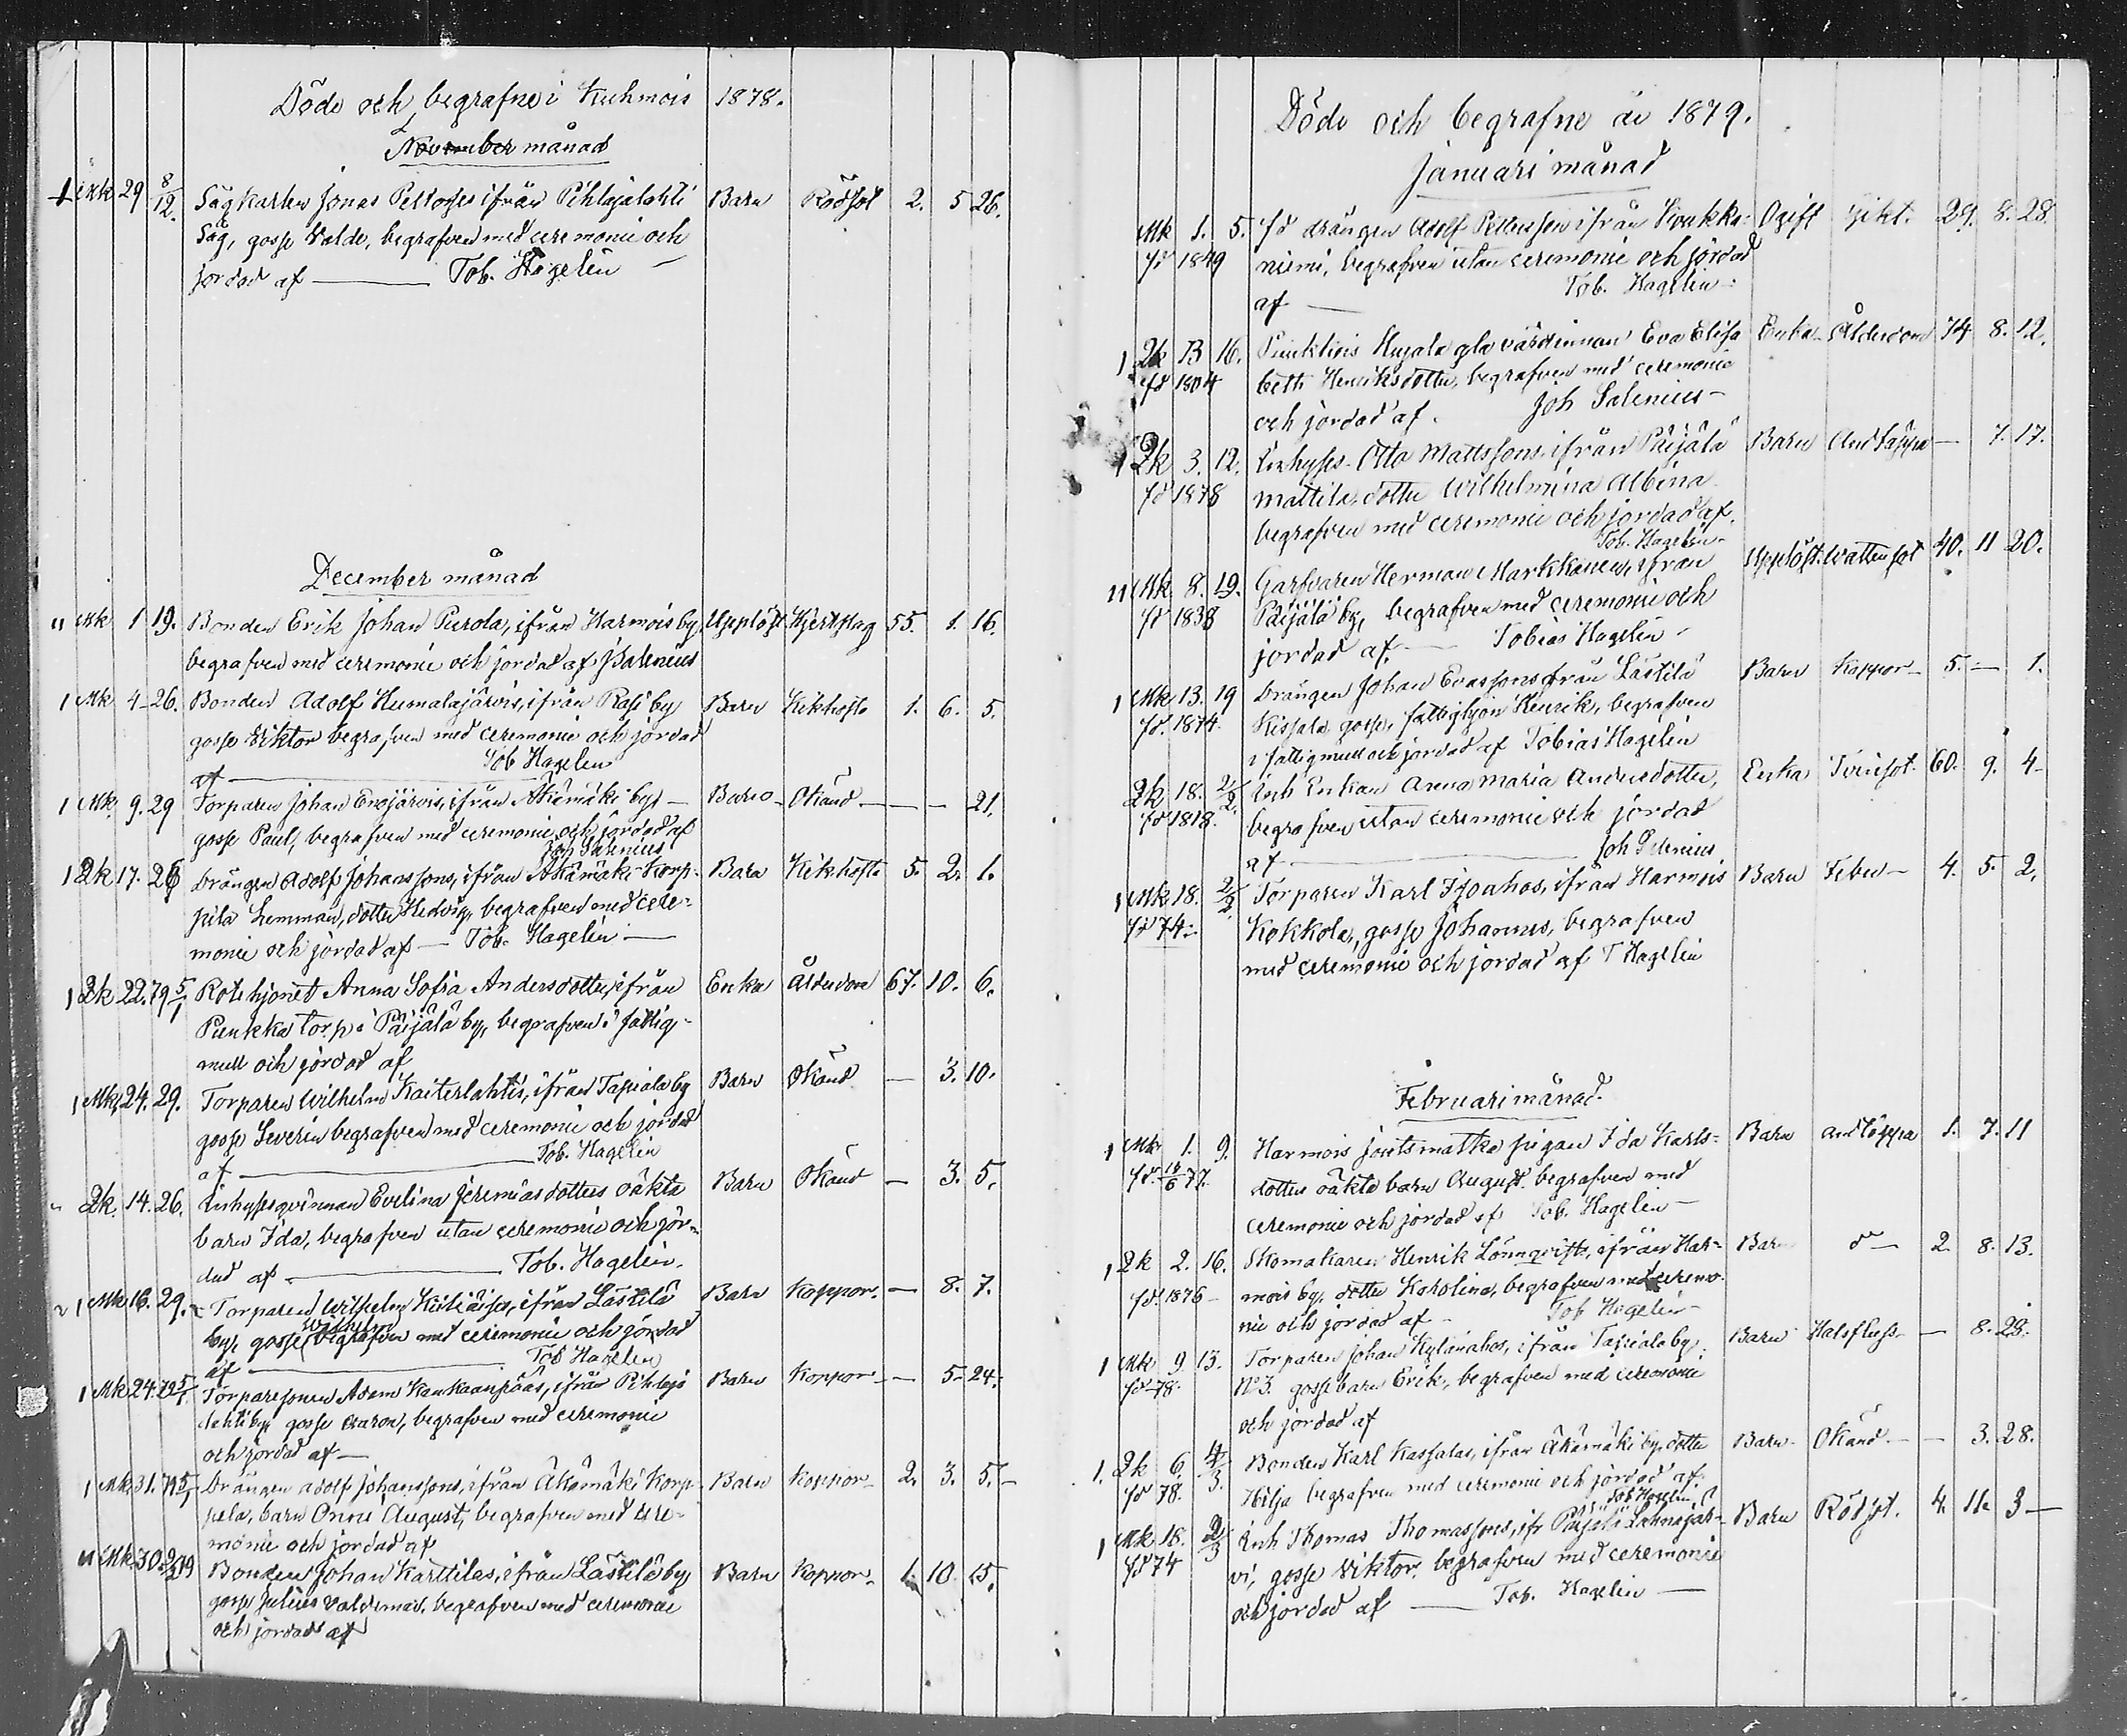 Döde och begrafne i Kuhmois 1878.
November månad
1 Mk 29 8/12. Sågkarlen Jonas Pettosses ifrån Pihlajalahti Barn Rödsot 2. 5 26.
Såg, gosse Valde, begrafven med ceremonie och
jordad af — Tob. Hagelin —
December månad
" Mk 1 19. Bonden Erik Johan Purola, ifrån Harmois by, Upplöst Hjertslag 55. 1. 16.
begrafven med ceremonie och jordad af J Salenius
1 Mk 4 - 26. Bonden Adolf Humalajärvis, ifrån Rasi by Barn Kikhosta 1. 6. 5.
gosse Viktor begrafven med ceremonie och jordad
af — Tob Hagelin
1 Mk. 9. 29 Torparen Johan Erojärvis, ifrån Äkämäki by — Barn - Okänd — — 21.
gosse Paul, begrafven med ceremonie och jordad af
Joh Salenius
1 Qk 17. 26 Drängen Adolf Johanssons, ifrån Äkämäki Korp- Barn Kikhosta 5. 2. 1.
pila Lemman, dotter Hedvig, begrafven med cere-
monie och jordad af — Tob. Hagelin —
1 Qk 22. 79 5/1 Rotehjonet Anna Sofia Andersdotter, ifrån Enka Ålderdom 67. 10. 6.
Punkka torp i Päijälä by, begrafven i fattig-
mull och jordad af
1 Mk. 24. 29. Torparen Wilhelm Kaiterlahtis, ifrån Tapiala by Barn Okänd — 3. 10.
gosse Severin begrafven med ceremonie och jordad
af — Tob. Hagelin
" Qk. 14. 26. Inhysesqvinnan Evelina Jeremiasdotters oäkta Barn Okänd — 3. 5.
barn Ida, begrafven utan ceremonie och jor-
dad af — Tob. Hagelin.
1 Mk 16. 29. Torparen Wilhelm ifrån Lästilä Barn Koppor. — 8. 7.
by, gosse Wilhelm begrafven med ceremonie och jordad
af — Tob Hagelin
1 Mk 24. 79 5/1. Torparesonen Adam Kankaanpääs, ifrån Pihlaja Barn Koppor — 5 - 24.
lahti by gosse Aaron, begrafven med ceremonie
och jordad af —
1 Mk 31. 79 5/1 Drängen Adolf Johanssons, ifrån Äkämäki Korp- Barn Koppor 2. 3. 5. —
pela, barn Onni August, begrafven med cere-
monie och jordad af
" Mk 30. 79 Bonden Johan Karttilas, ifrån Lästilä by Barn Koppor. 1. 10. 15.
gosse Julius Valdemar, begrafven med ceremonie
och jordad af
Döde och begrafne år 1879.
Januari månad
Mk 1. 5. fd drängen Adolf Pettersson ifrån Ogift Gikt. 29. 8. 28.
fd 1849 niemi, begrafven utan ceremonie och jordad
af — Tob. Hagelin —
1 Qk 13 16. Puukkois Hujala gla värdinnan Eva Elisa Enka Ålderdom 74 8. 12.
fd 1804 beth Henriksdotter, begrafven med ceremonie
och jordad af. Joh Salenius —
1 Qk 3. 12. Inhyses Otto Mattssons ifrån Päijälä Barn Andtäppa — 7. 17.
fd 1878 Mattila, dotter Wilhelmina Albina
begrafven med ceremonie och jordad af.
Tob. Hagelin —
11 Mk. 8. 19. Garfvaren Herman Markkanen, ifrån Upplöst. Vattensot 40. 11 20.
fd 1838 Päijälä by, begrafven med ceremonie och
jordad af — Tobias Hagelin —
1 Mk 13. 19 Drängen Johan Evassons från Lästilä Barn Koppor — 5. — 1.
fd. 1874. Kissala, gosse, fattighjon Henrik, begrafven
i fattigmull och jordad af Tobias Hagelin
Qk 18. 2/2. Inh Enkan Anna Maria Andersdotter, Enka Tvinsot. 60. 9. 4 -
fd 1818. begrafven utan ceremonie och jordad
af — Joh Salenius
1 Mk 18. 2/2. Torparen Karl Isoahos, ifrån Harmois Barn Feber — 4. 5. 2.
fd 74. Kokkola, gosse Johannes, begrafven
med ceremonie och jordad af T Hagelin
Februari månad.
1 Mk 1. 9. Harmois Joutsmatka pigan Ida Karls- Barn andtäppa 1. 7. 11
fd. 18/6 77. dotters oäkta barn August begrafven med
ceremonie och jordad af Tob. Hagelin —
1 Qk 2. 16. Skomakaren Henrik Lönnqvists, ifrån Har- Barn do — 2. 8. 13.
fd. 1876 — mois by, dotter Karolina, begrafven med ceremo-
nie och jordad af — Tob Hagelin —
1 Mk 9. 13. Torparen Johan Kylänahos, ifrån Tapiala by. Barn Halsfluss — — 8. 28.
fd - 78. No 3. gossebarn Erik, begrafven med ceremonie
och jordad af
1. Qk 6. 4/3. Bonden Karl Kassalas, ifrån Äkämäki by, dotter Barn - Okänd. — — 3. 28.
fd 78. Hilja begrafven med ceremonie och jordad af
Tob Hagelin
1 Mk 18. 2/3 Inh Thomas Thomassons, ifr Päijälä Lahnajär- Barn Rödsot. 4. 11. 3 —
fd 74 vi, gosse Viktor, begrafven med ceremonie
och jordad af — Tob. Hagelin —